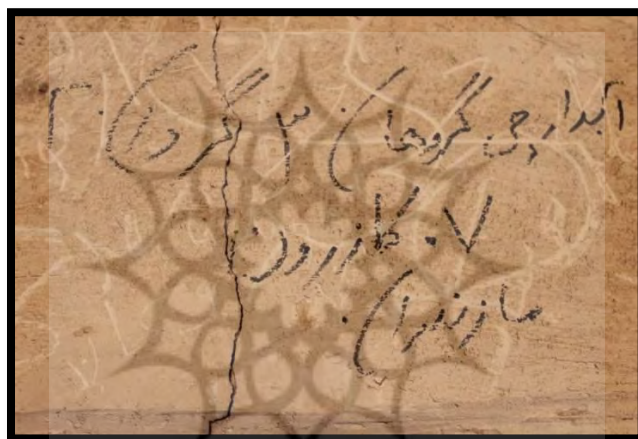 آبدارچی گروهان ۳ گردان ۲
۰۷ کازرون
مازندران